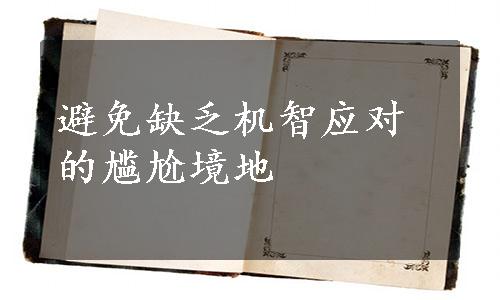 避免缺乏机智应对
的尴尬境地